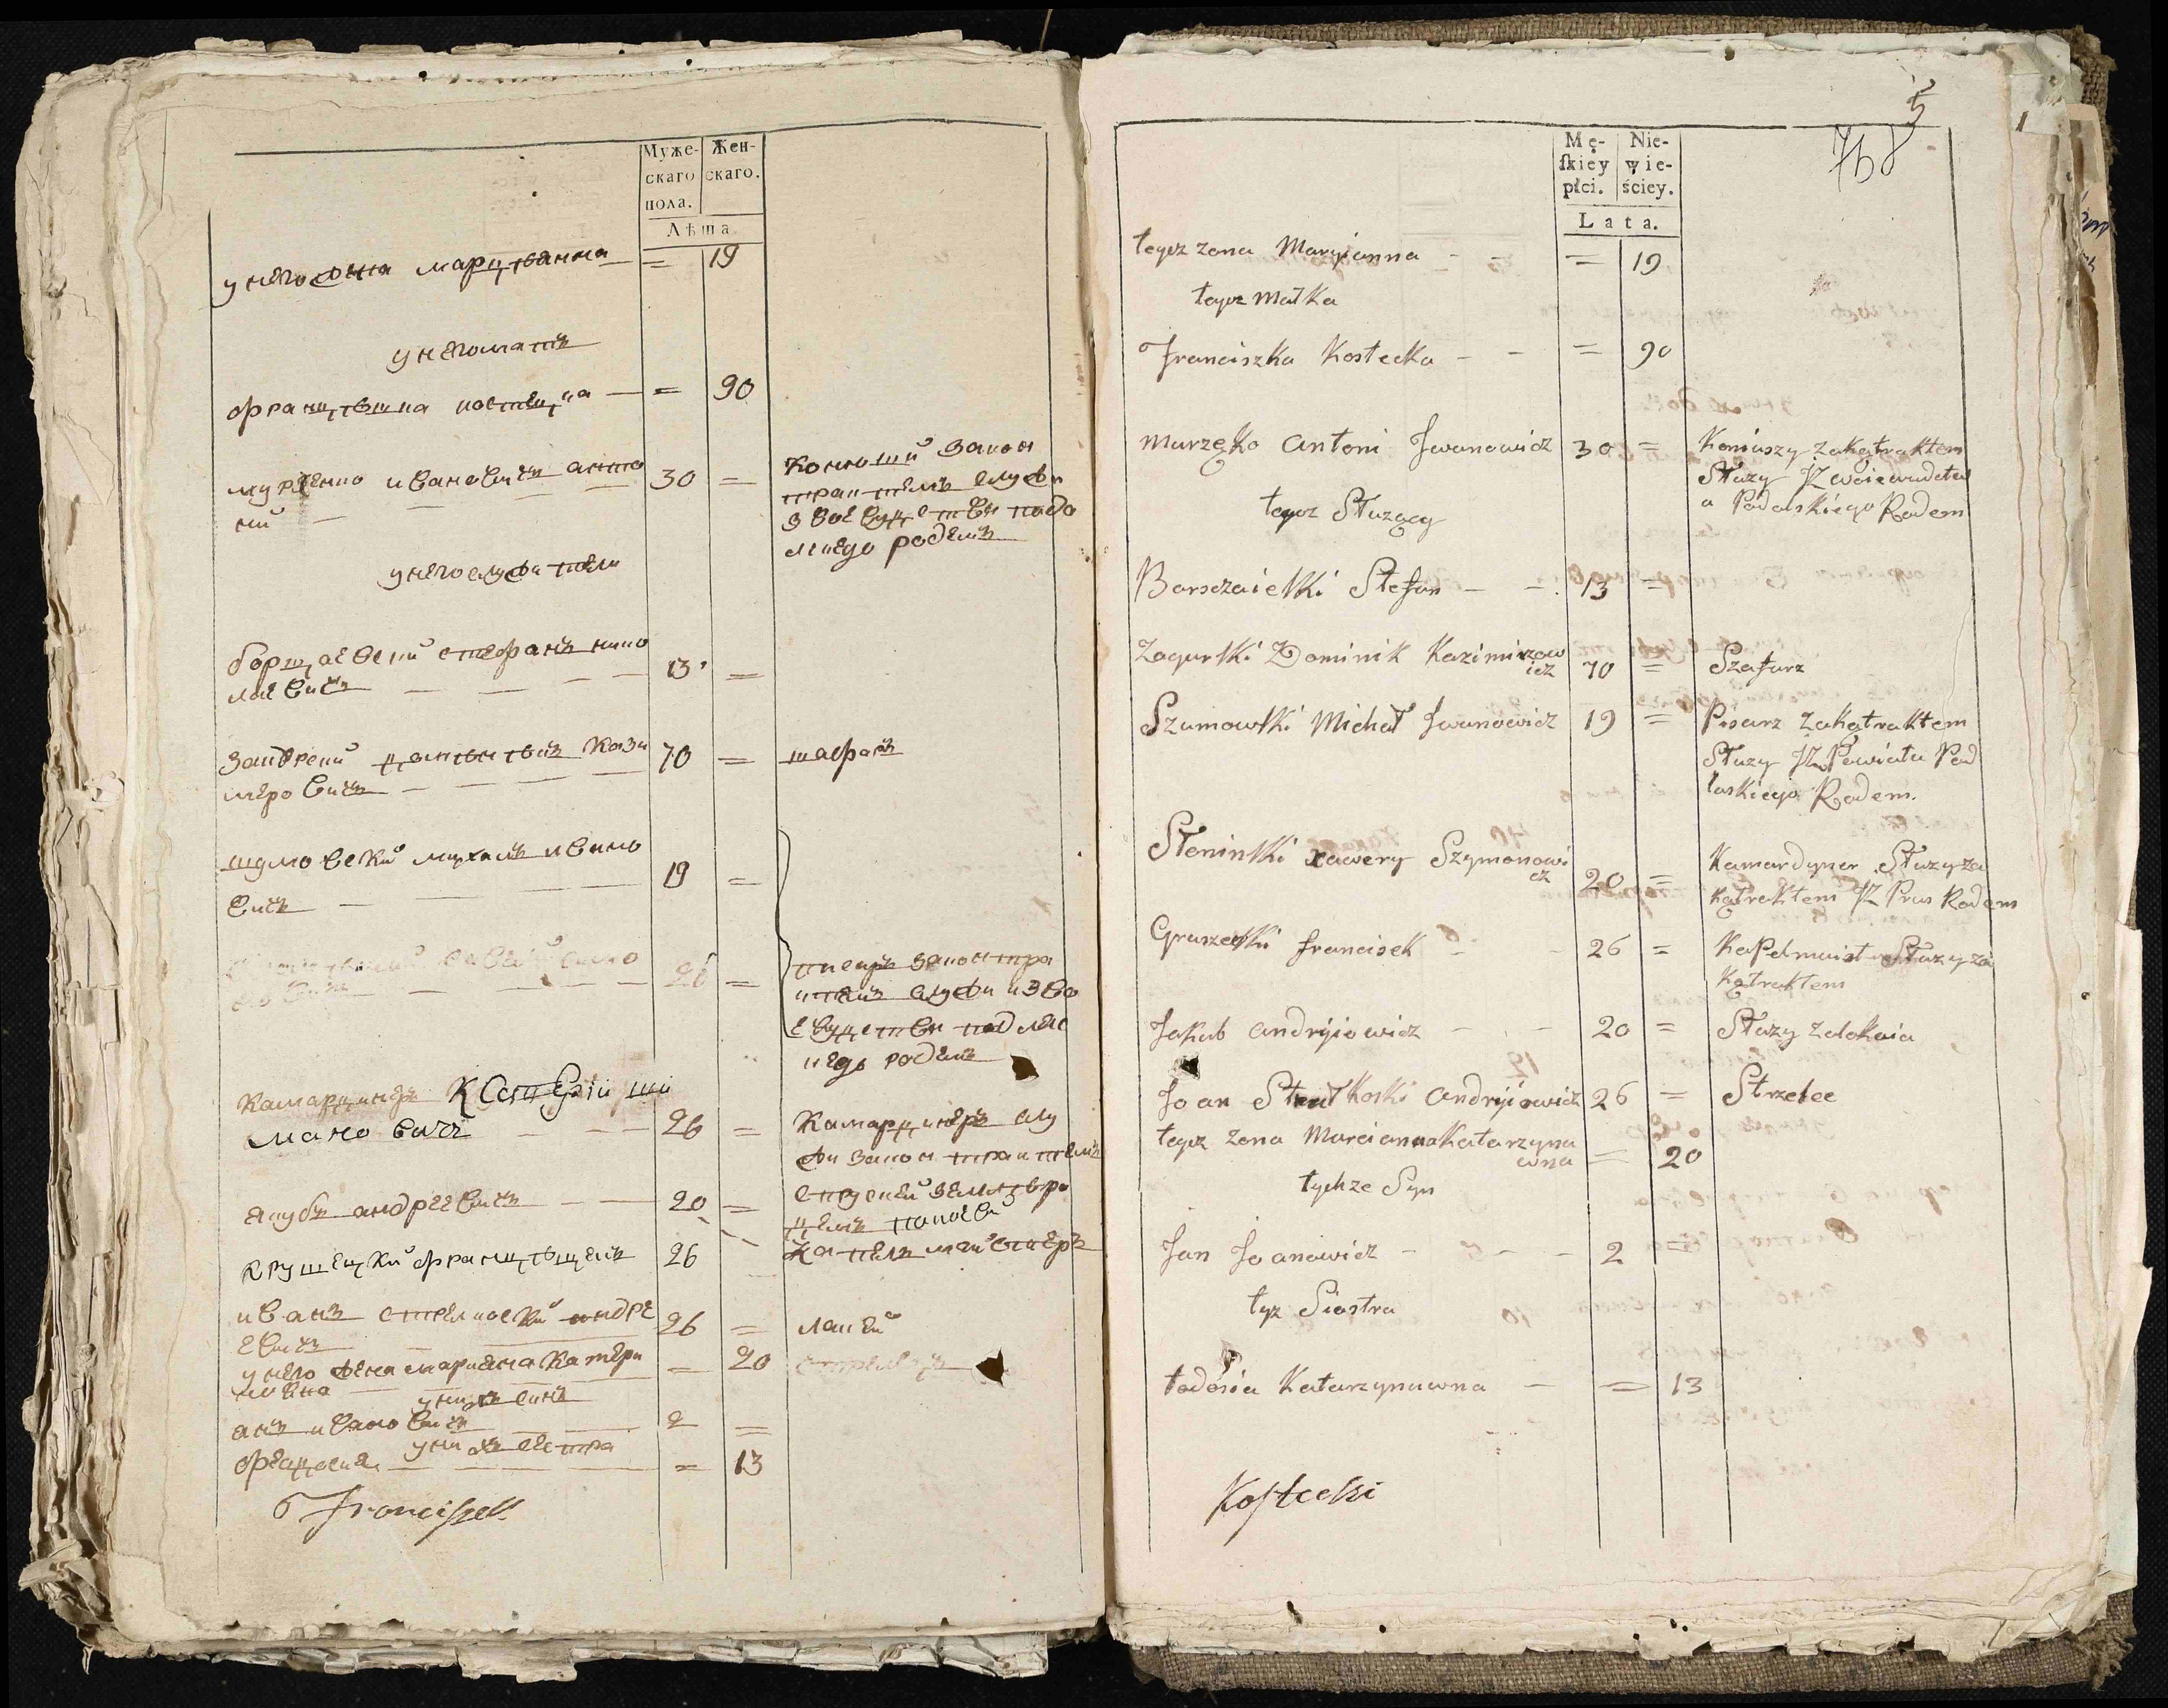 Муже-
скаго
пола.
Жен-
скаго.
Лѣта
у него жена марцианна = 19
у него мать
францишка костецка — = 90
мурженко ивановичъ анто 30 =
ній
конюший закон
трактемъ служи
з воевуцства подо
лскего родемъ
у него служители
борщаевский стефанъ нико
лаевичъ 13 =
загурский доминикъ кази
меровичъ 70 = шафаръ
шумовский михалъ ивано
вичъ 19 =
20 =
писаръ законтра
ктемъ служи изво
евуцства подляс
кего родемъ
камардинеръ
мановичъ 26 =
камардинеръ слу
жи законтрактемъ
якубъ андреевичъ — 20 =
крушецкий францищекъ 26
капелмайстеръ
иванъ стрелкоский андре
евичъ 26 = локей
у него жена марияна катери
новна = 20 стрелецъ
у нихъ синъ
янъ ивановичъ 2 =
у них сестра
феодосия = 13
Franciszek
5
768
Mę-
ſkiey
płci.
Nie-
wie-
ściey.
Lata.
tegoz zona Maryianna - - = 19
tegoz Matka
Franciszka Kostecka - - = 90
Murzęko Antoni Jwanowicz 30 = Koniuszy zakątraktem
Słuzy Z woiewudctw
a Podolskiego Rodem
tegoz Słuzący
Barsczaielski Stefan - - 13 =
Zagurski Dominik Kazimirzow
icz 70 = Szafarz
Szumowski Michał Jwanowicz 19 = Pisarz zakątraktem
Słuzy Z Powiatu Pod
laskiego Rodem.
Słeninski xawery Szymonowi
cz 20 = Kamardyner Słuzy za
kątraktem Z Prus Rodem
Gruszecki francisek - - 26 = Kapelmaist Słuzy za
kątraktem
Jakub Andryiowicz - - 20 = Słuzy zalokaia
Joan Strełkoski Andryiowicz 26 = Strzelec
tegoz zona Marcianna Katarzyna
wna = 20
tychze Syn
Jan Joanowicz - - - 2 =
tyz Siostra
todosia Katarzynawna - = 13
Kostecki